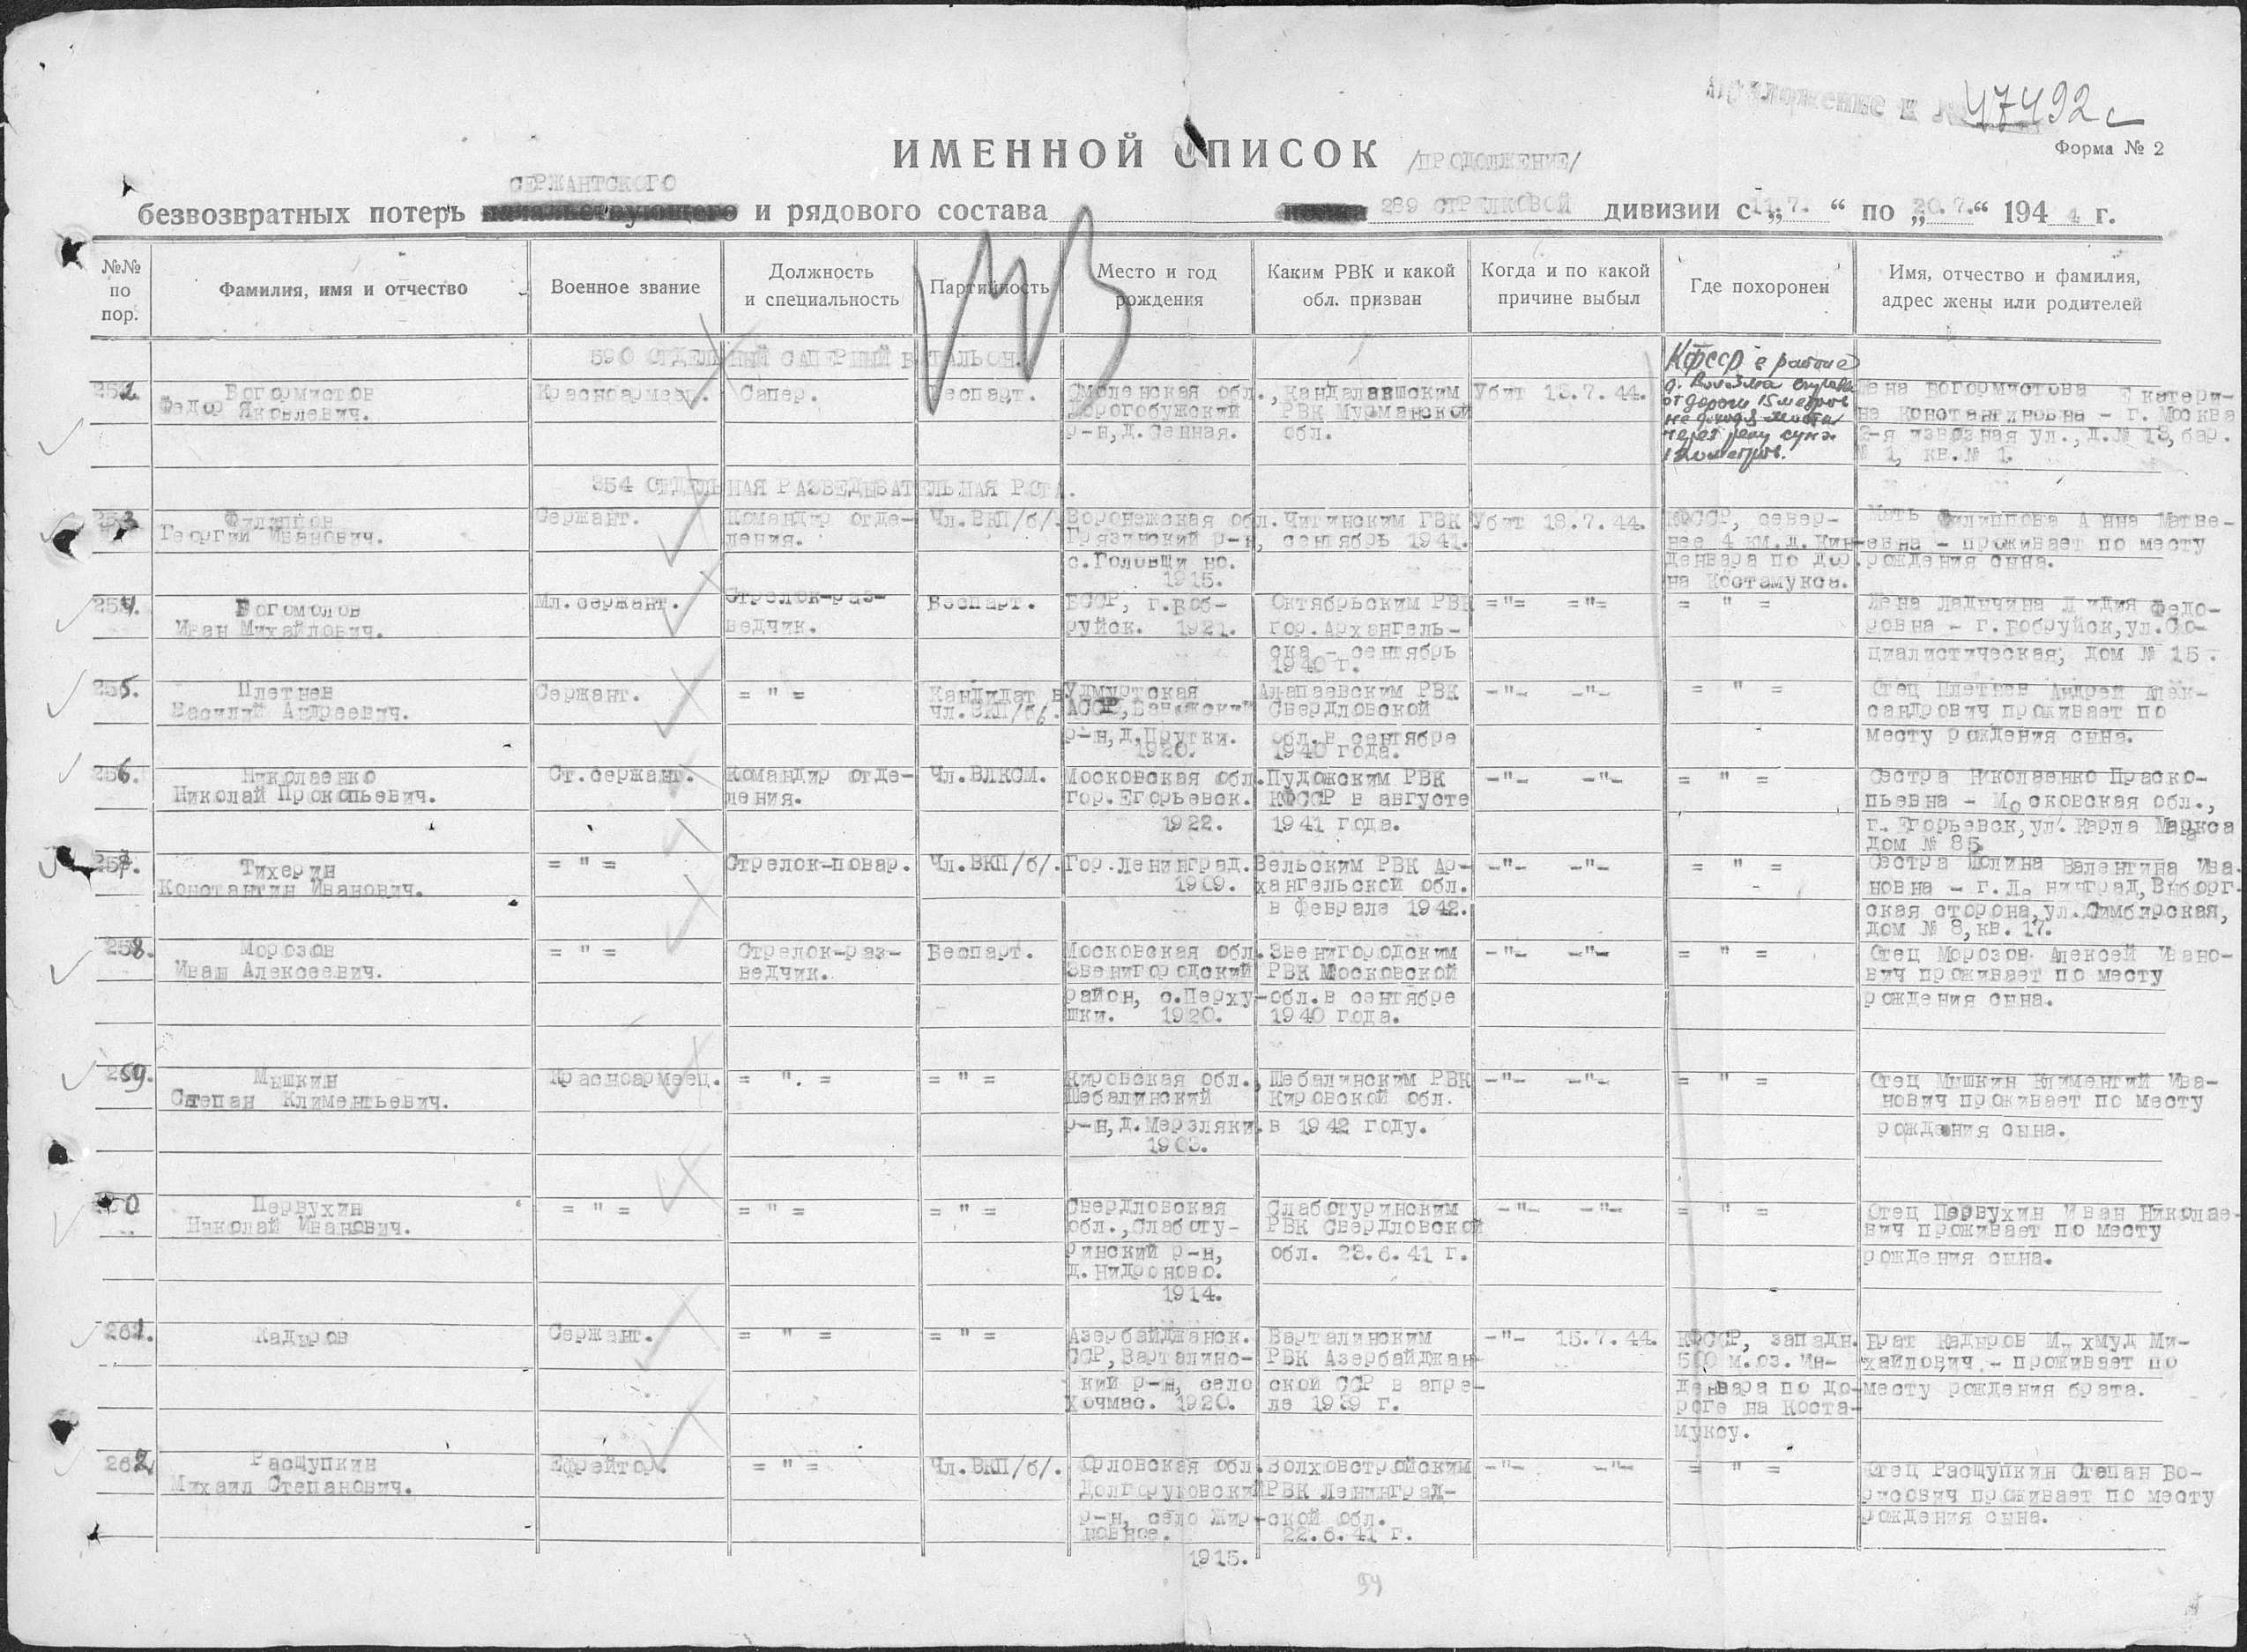 Приложение к № 47492с
Форма № 2
ИМЕННОЙ СПИСОК /ПРОДОЛЖЕНИЕ/
СЕРЖАНТСКОГО
безвозвратных потерь начальствующего и рядового состава полка 289 СТРЕЛКОВОЙ дивизии с „11.7.“ по „20.7.“ 1944 г.
№№ по пор.
Фамилия, имя и отчество
Военное звание
Должность и специальность
Партийность
Место и год рождения
Каким РВК и какой обл. призван
Когда и по какой причине выбыл
Где похоронен
Имя, отчество и фамилия, адрес жены или родителей
590 ОТДЕЛЬНЫЙ САПЕРНЫЙ БАТАЛЬОН.
252. Богормистов Красноармеец. Сапер. Беспарт. Смоленская обл., Кандалакшским Убит 13.7.44. КФССР в районе
Федор Яковлевич. Дорогобужский РВК Мурманской д. справа
р-н, д. Сенная. обл. от дороги 15 метров
не доходя моста
через реку
метров.
Жена Богормистова Екатери-
на Константиновна - г. Москва
2-я извозная ул., д.№ 13, бар.
№ 1, кв.№ 1.
354 ОТДЕЛЬНАЯ РАЗВЕДЫВАТЕЛЬНАЯ РОТА.
253 Филиппов Сержант. Командир отде- Чл.ВКП/б/. Воронежская обл. Читинским ГВК Убит 18.7.44. КФССР, север- Мать Филиппова Анна Матве-
Георгий Иванович. ления. Грязинский р-н, сентябрь 1941. нее 4 км.д. Кин- евна - проживает по месту
с.Головщино. денвара по дор. рождения сына.
1915. на Костамукса.
254. Богомолов Мл.сержант. Стрелок-раз- Беспарт. БССР, г.Боб- Октябрьским РВК ="= ="= = " = Жена Ладычина Лидия Федо-
Иван Михайлович. ведчик. руйск. 1921. гор.Архангель- ровна - г.Бобруйск, ул.Со-
ска - сентябрь циалистическая, дом № 15.
1940 г.
255. Плетнев Сержант. = " = Кандидат в Удмуртская Алапаевским РВК -"- -"- = " = Отец Плетнев Андрей Алек-
Василий Андреевич. чл.ВКП/б/. АССР, Свердловской сандрович проживает по
р-н, д.Прутки. обл.в сентябре месту рождения сына.
1920. 1940 года.
256. Николаенко Ст.сержант. Командир отде- Чл.ВЛКСМ. Московская обл. Пудожским РВК -"- -"- = " = Сестра Николаенко Праско-
Николай Прокопьевич. ления. гор.Егорьевск. КФССР в августе пьевна - Московская обл.,
1922. 1941 года. г. Егорьевск, ул. Карла Маркса
дом № 85.
257. Тихерин = " = Стрелок-повар. Чл.ВКП/б/. Гор.Ленинград. Вельским РВК Ар- -"- -"- = " = Сестра Шолина Валентина Ива-
Константин Иванович. 1909. хангельской обл. новна - г.Ленинград, Выборг-
в феврале 1942. ская сторона, ул.Симбирская,
дом № 8, кв. 17.
258. Морозов = " = Стрелок-раз- Беспарт. Московская обл. Звенигородским -"- -"- = " = Отец Морозов Алексей Ивано-
Иван Алексеевич. ведчик. Звенигородский РВК Московской вич проживает по месту
район, с.Перху- обл.в сентябре рождения сына.
шки. 1920. 1940 года.
259. Мышкин Красноармеец. = ". = = " = Кировская обл., Шебалинским РВК -"- -"- = " = Отец Мышкин Климентий Ива-
Степан Климентьевич. Шебалинский Кировской обл. нович проживает по месту
р-н, д.Мерзляки. в 1942 году. рождения сына.
1903.
260 Первухин = " = = " = = " = Свердловская Слаботуринским -"- -"- = " = Отец Первухин Иван Николае-
Николай Иванович. обл., Слаботу- РВК Свердловской вич проживает по месту
ринский р-н, обл. 23.6.41 г. рождения сына.
д.Нидроново.
1914.
261. Кадыров Сержант. = " = = " = Азербайджанск. Варталинским -"- 15.7.44. КФССР, западн. Брат Кадыров Махмуд Ми-
ССР, Варталинс- РВК Азербайджан- 500 м.оз. Ин- хайлович - проживает по
кий р-н, село ской ССР в апре- денвара по до- месту рождения брата.
Хочмас. 1920. ле 1939 г. роге на Коста-
муксу.
262 Расщупкин Ефрейтор. = " = Чл.ВКП/б/. Орловская обл. Волховстройским -"- -"- = " = Отец Расщупкин Степан Бо-
Михаил Степанович. Долгоруковский РВК Ленинград- рисович проживает по месту
р-н, село Жир- ской обл. рождения сына.
новное. 22.6.41 г.
1915.
94